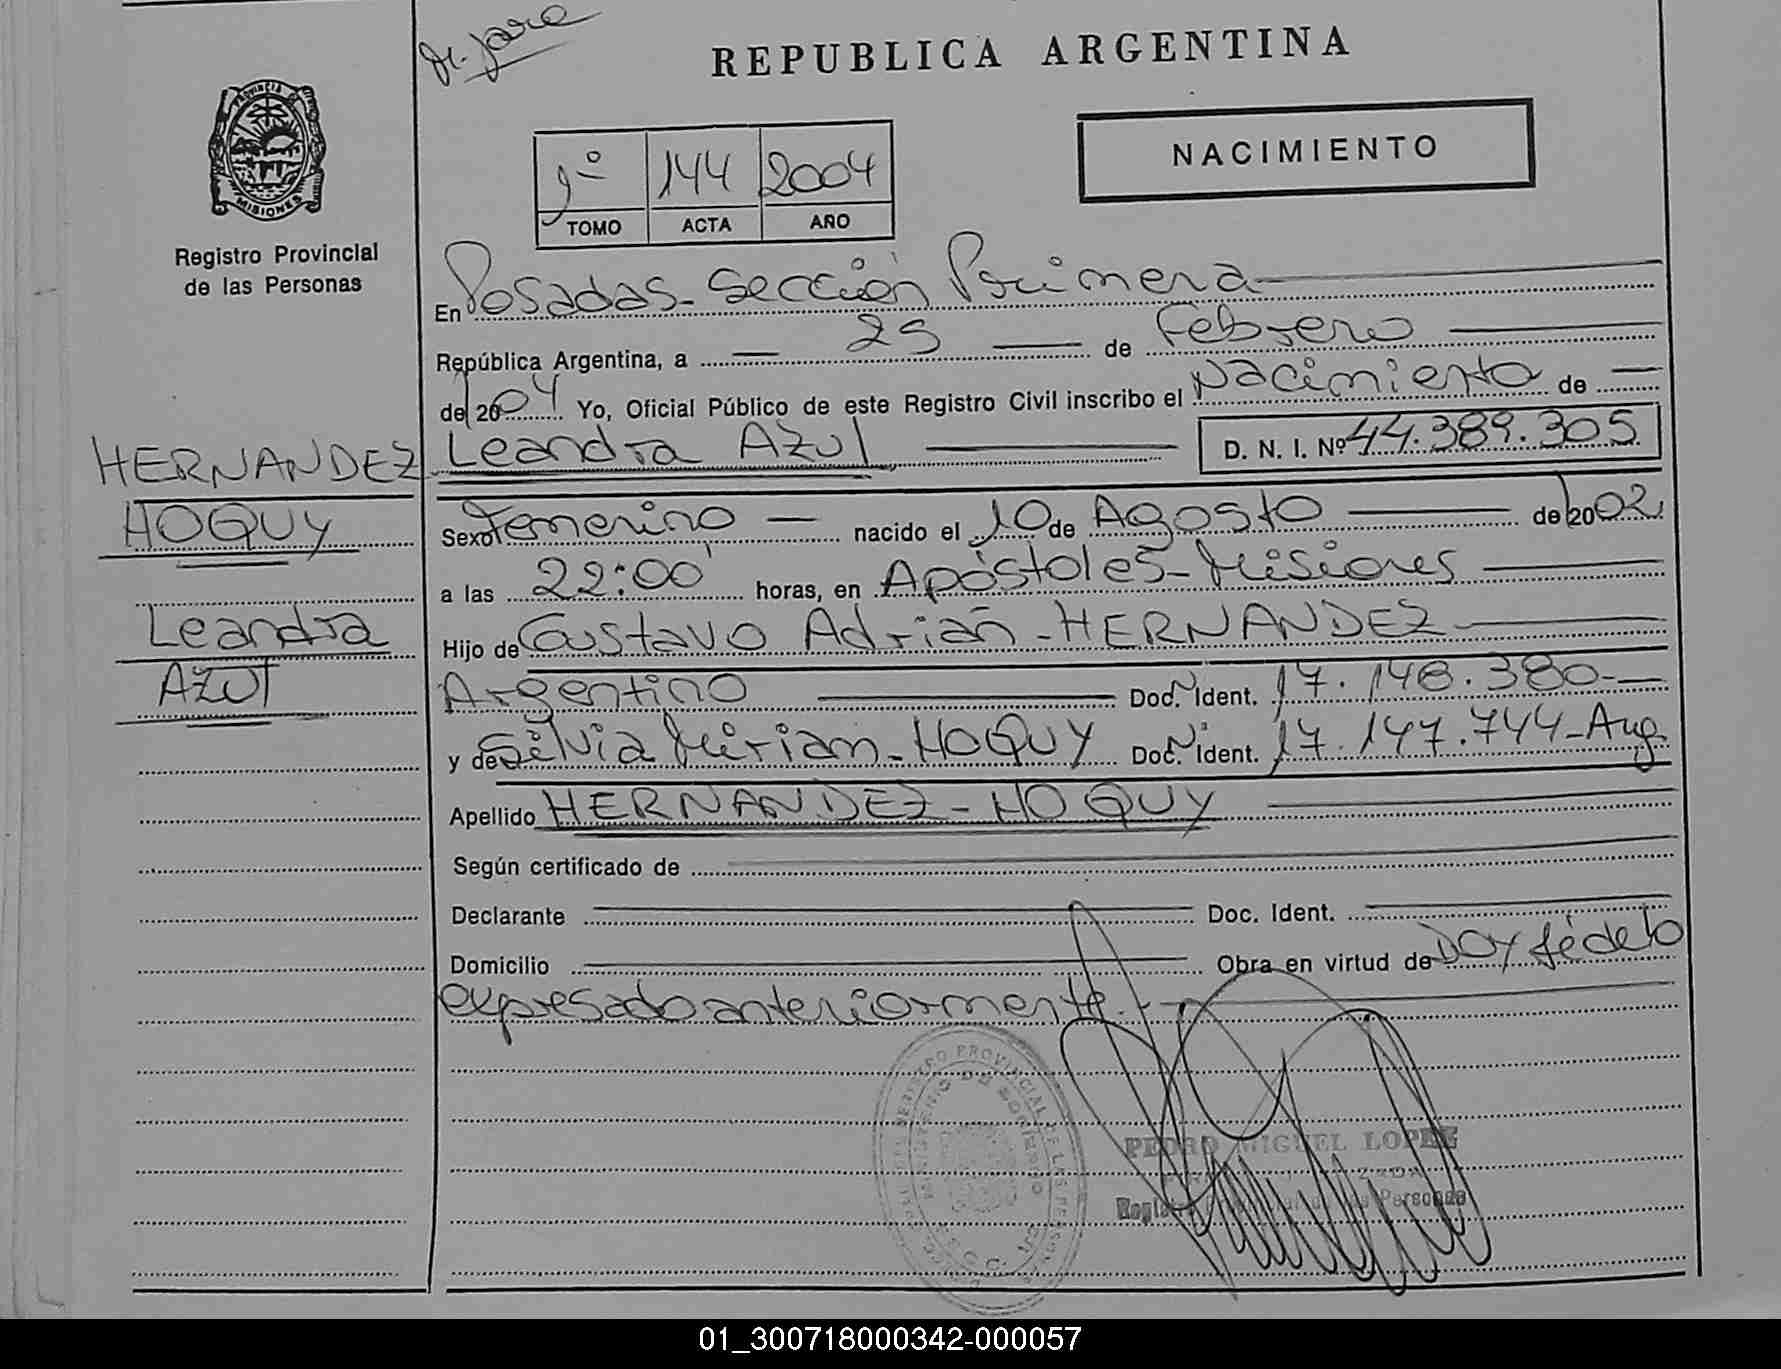 REPUBLICA ARGENTINA
PROVINCIA DE
MISIONES
Registro Provincial
de las Personas
NACIMIENTO
1º 144 2004
TOMO ACTA AÑO
En Posadas-Sección Primera
República Argentina, a 25 de Febrero
de 2004 Yo, Oficial Público de este Registro Civil inscribo el Nacimiento de
HERNANDEZ
HOQUY
Leandra
Azul
Leandra Azul D. N. I. Nº 44.389.305
Sexo Femenino nacido el 10 de Agosto de 2002
a las 22:00 horas, en Apóstoles-Misiones
Hijo de Gustavo Adrián-HERNANDEZ
Argentino Doc. Ident. 17.146.380
y de Silvia Mirian-HOQUY Doc. Ident. 17.147.744-Arg.
Apellido HERNANDEZ-HOQUY
Según certificado de
Declarante Doc. Ident.
Domicilio Obra en virtud de Doy fé de lo
expresado anteriormente.-
PEDRO MIGUEL LOPEZ
01_300718000342-000057